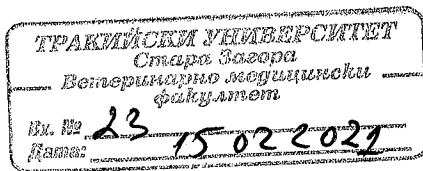 ТРАКИЙСКИ УНИВЕРСИТЕТ
Стара Загора
Ветеринарно медицински
факултет
Вх. № 23
Дата: 15 02 2021